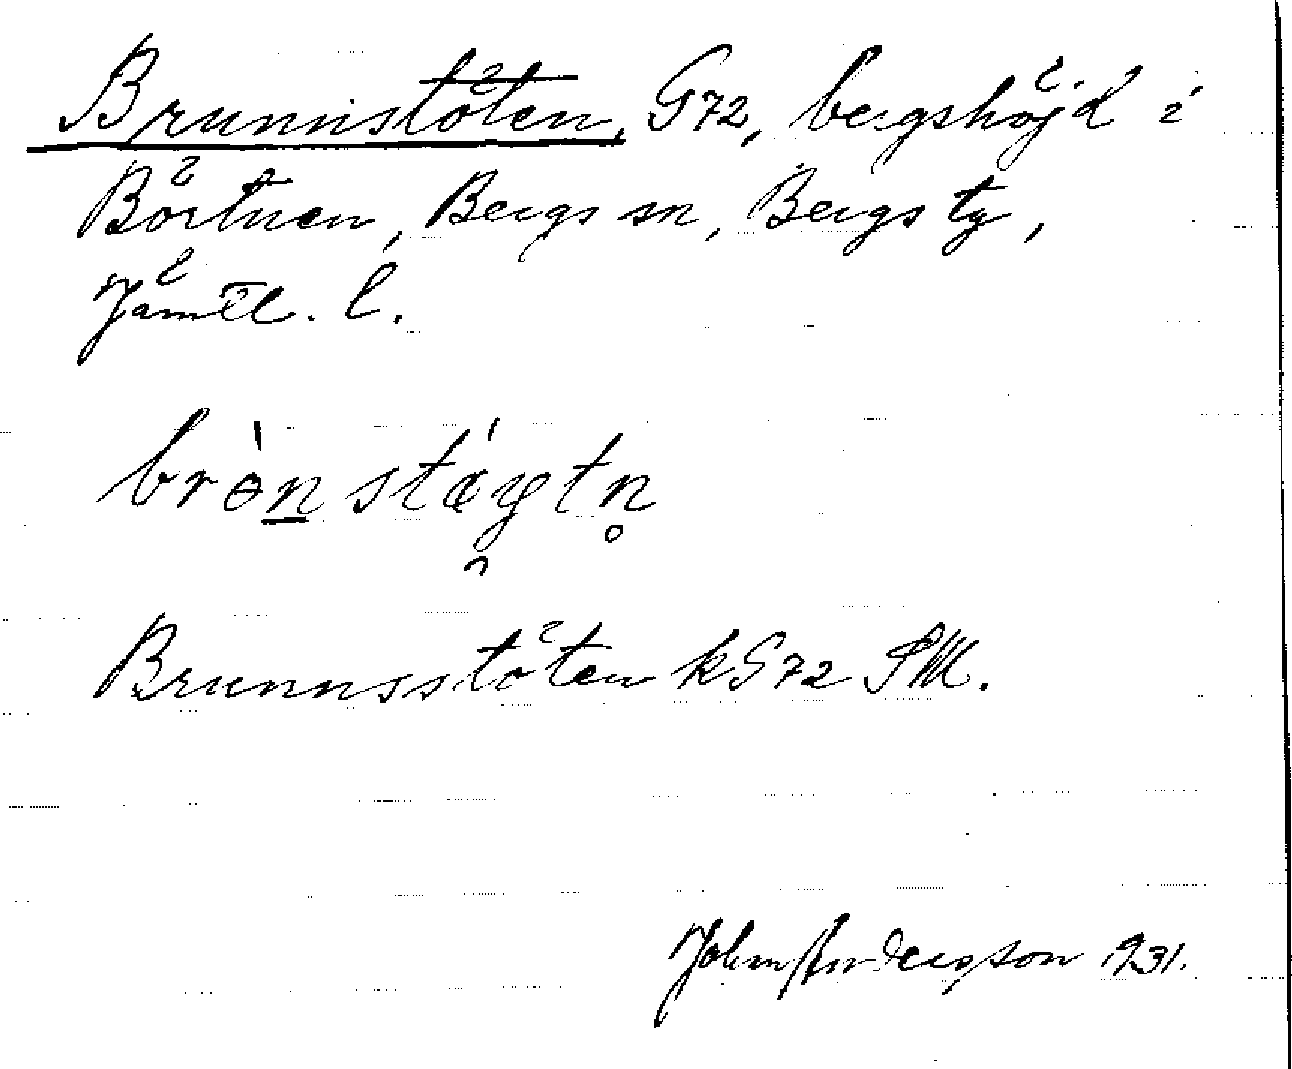 Brunnstöten, G72, bergshöjd i
Börtnen, Bergs sn, Bergs tg,
Jämtl. l.
brònstǽytn̥
Brunnsstöten kG72 SM.
John Andersson 1931.